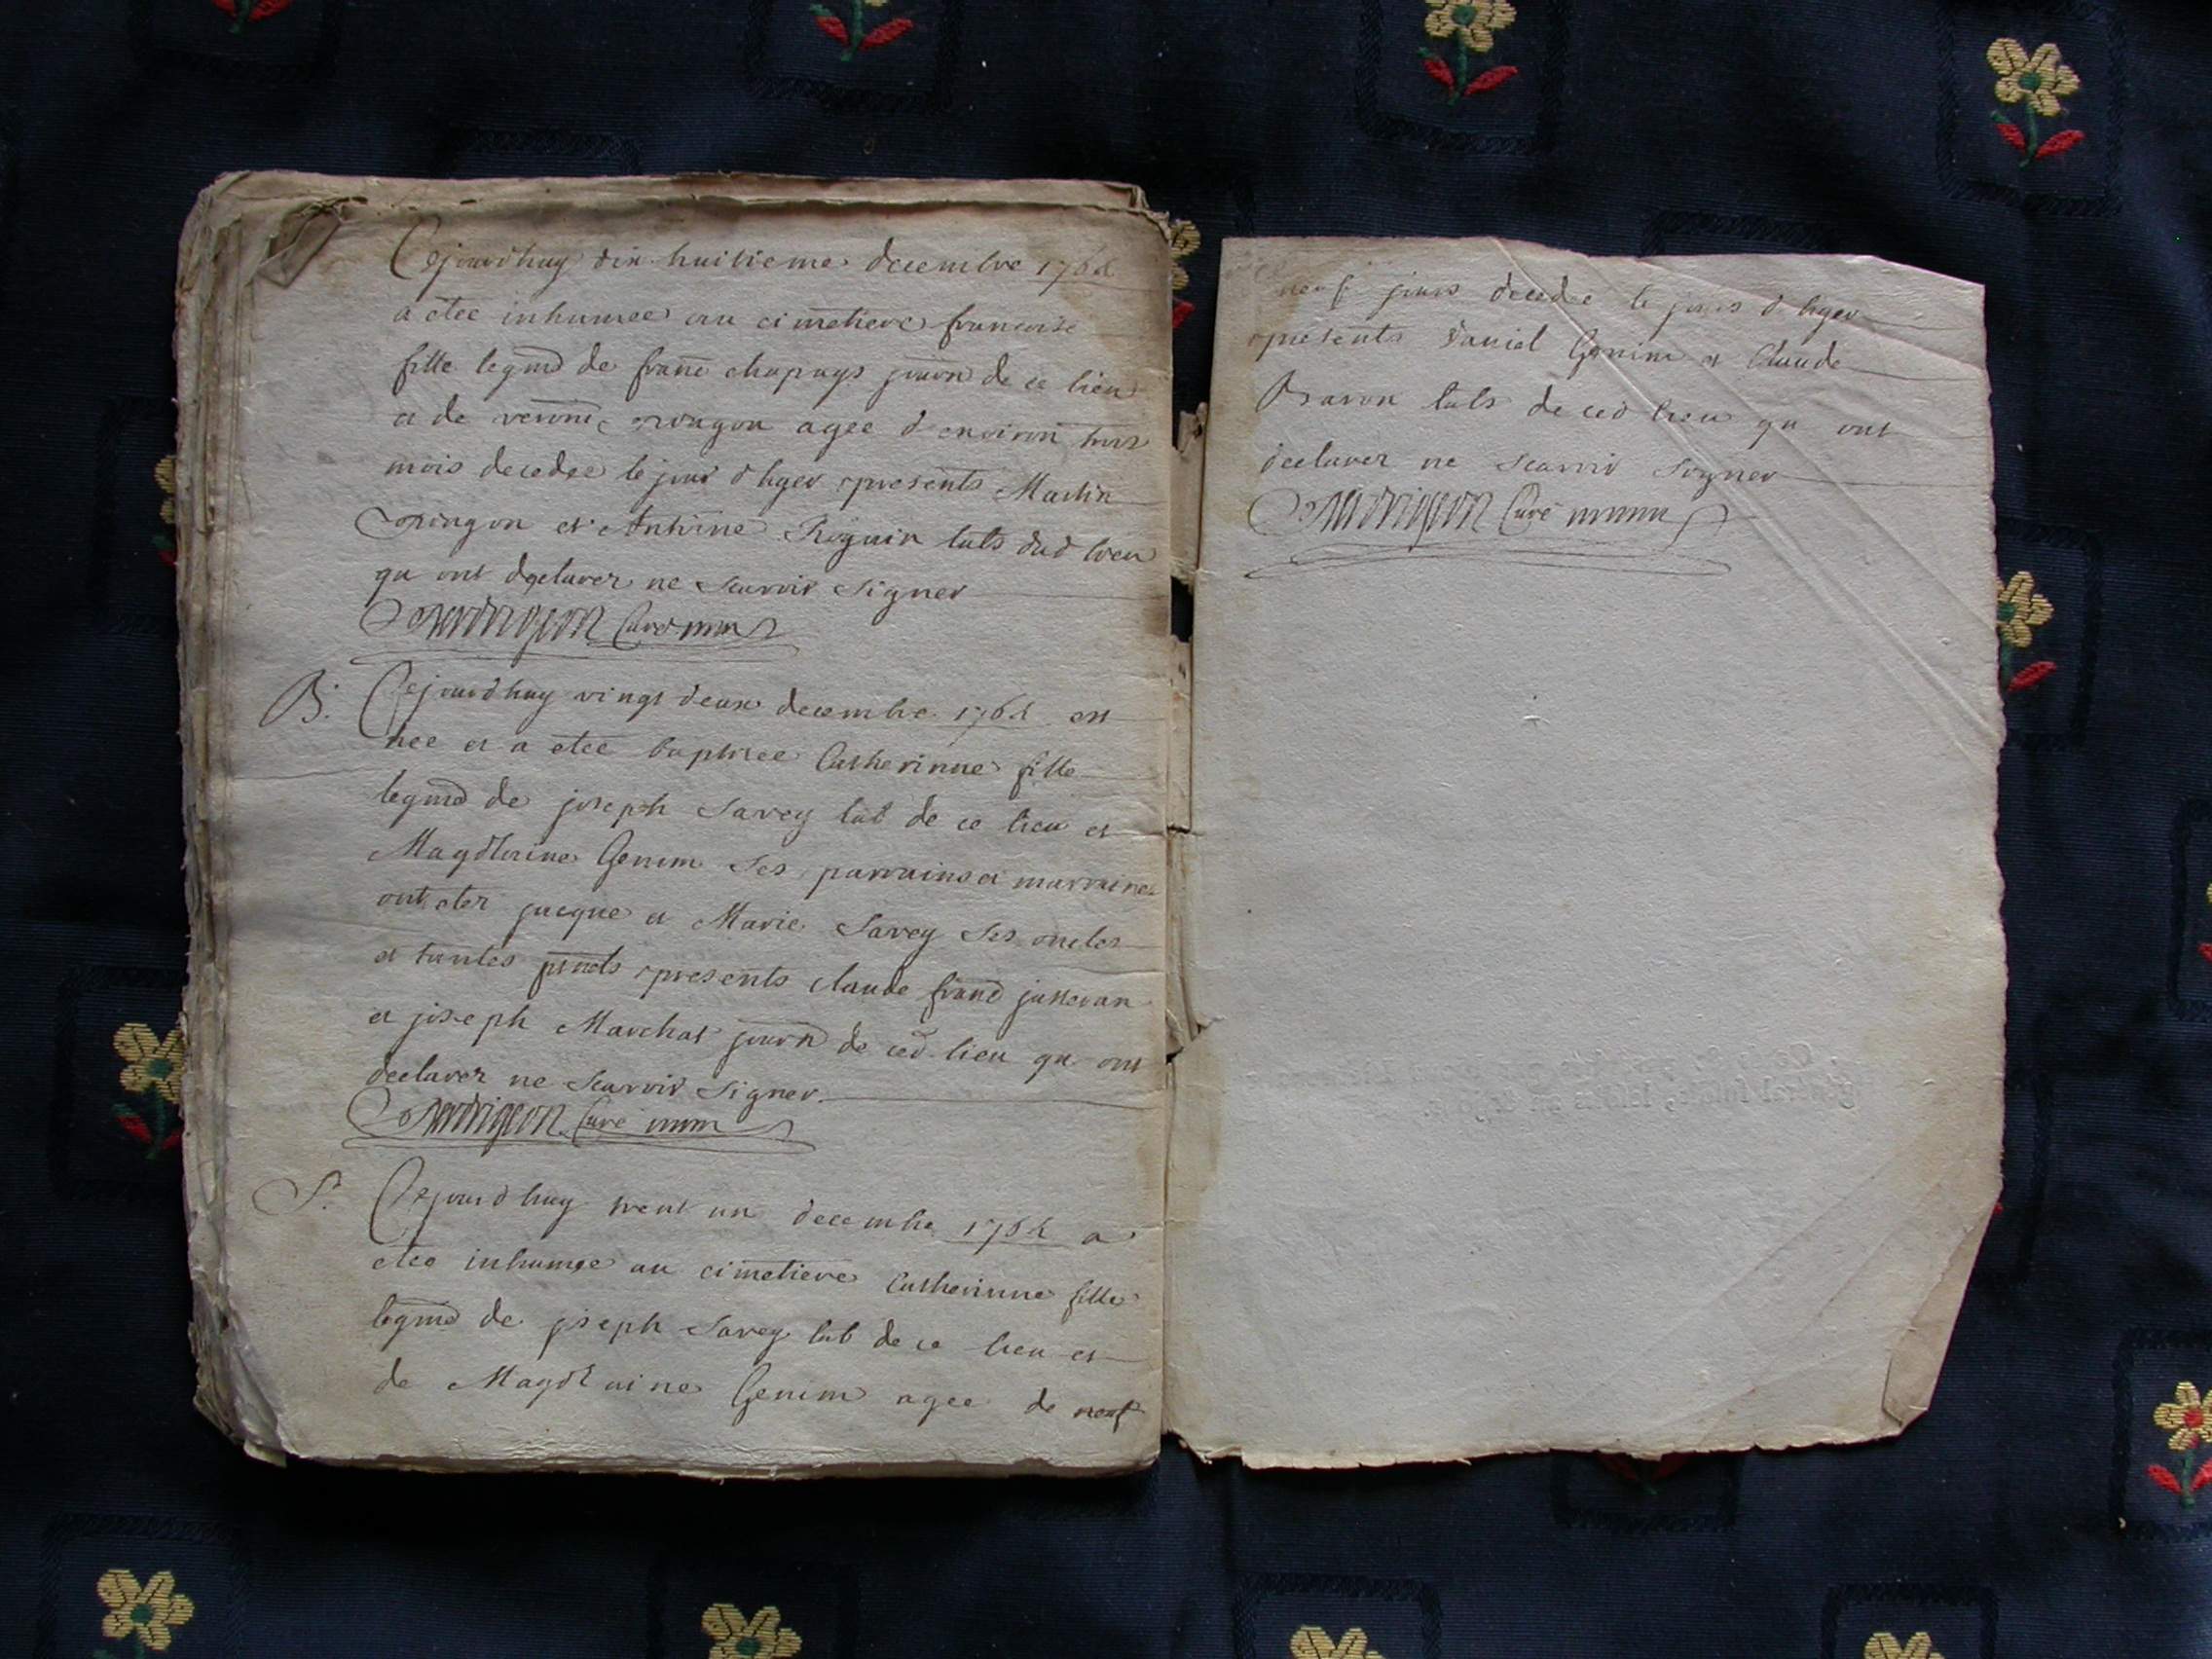 Cejourdhuy dix huitieme decembre 1764
a etee inhumee au cimetiere francoise
fille legme de franc chapuys journ de ce lieu
et de veronic agee d'environ trois
mois decedee le jour d hyer presents Martin
et Anthoine Roguin labs dud lieu
qu ont declarer ne scavoir signer
Curé
B. Cejourdhuy vingt deux decembre 1764 est
nee et a etee baptisee Catherinne fille
legme de joseph Savey lab de ce lieu et
Magdlaine Genim ses parrains et marraines
ont eter jacque et Marie Savey ses oncles
et tantes pnts presents claude franc
et joseph Marchat journ de ced lieu qu ont
declarer ne scavoir signer.
Curé
S. Cejourdhuy trent un decembre 1764 a
etee inhumee au cimetiere Catherinne fille
legme de joseph Savey lab de ce lieu et
de Magdlaine Genim agee de neuf
neuf jours decedee le jours d hyer
presents Daniel Genim et Claude
Baron labs de ced lieu qu ont
declarer ne scavoir signer
Curé